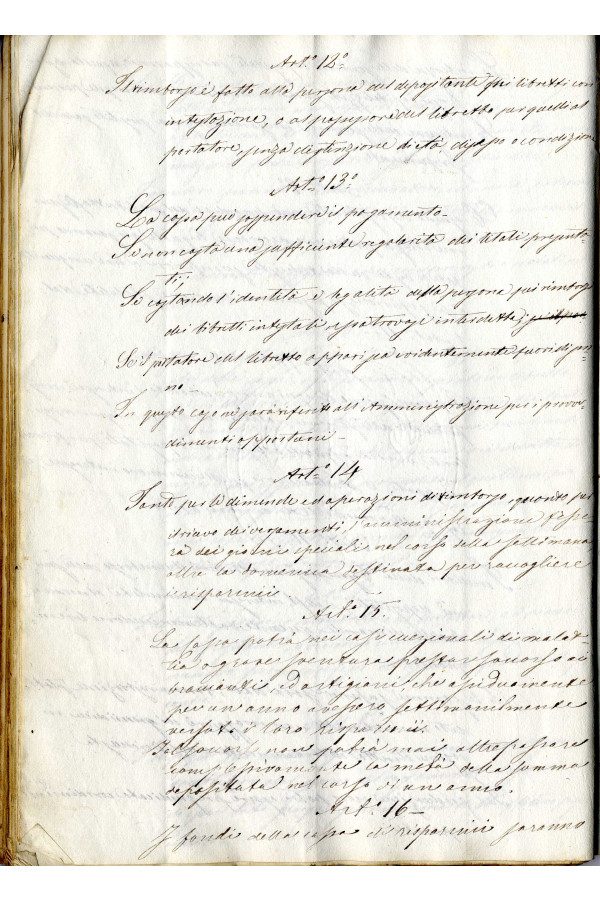 Art.° 12°
Il rimborso è fatto alla persona del depositante pei libretti con
intestazione, o al possessore del libretto per quelli al
portatore senza distinzione di età, di sesso o condizione
Art.° 13°
La cassa può sospendere il pagamento
Se non costa una sufficiente regolarità dei titoli presenta-
ti;
Se costando l'identità e legalità della persona pei rimborsi
dei libretti intestati essa trovasi interdetta;
Se il portatore del libretto apparisca evidentemente fuori di sen-
no
In questo caso ne sarà riferito all'Amministrazione per i provve-
dimenti opportuni
Art.° 14
Tanto per le dimande ed operazioni di rimborso, quanto pel
ritiro dei versamenti, l'amministrazione fisse-
rà dei giorni speciali nel corso della settimana
oltre la domenica destinata per raccogliere
i risparmii.
Art.° 15.
La Cassa potrà nei casi eccezionali di malat-
tia o grave sventura prestar soccorso ai
braccianti ed artigiani, che assiduamente
per un anno avessero settimanilmente
versato i loro risparmii.
Tal soccorso non potrà mai oltrepassare
complessivamente la metà della somma
depositata nel corso d'un anno.
Art.° 16
I fondi della cassa di risparmii saranno